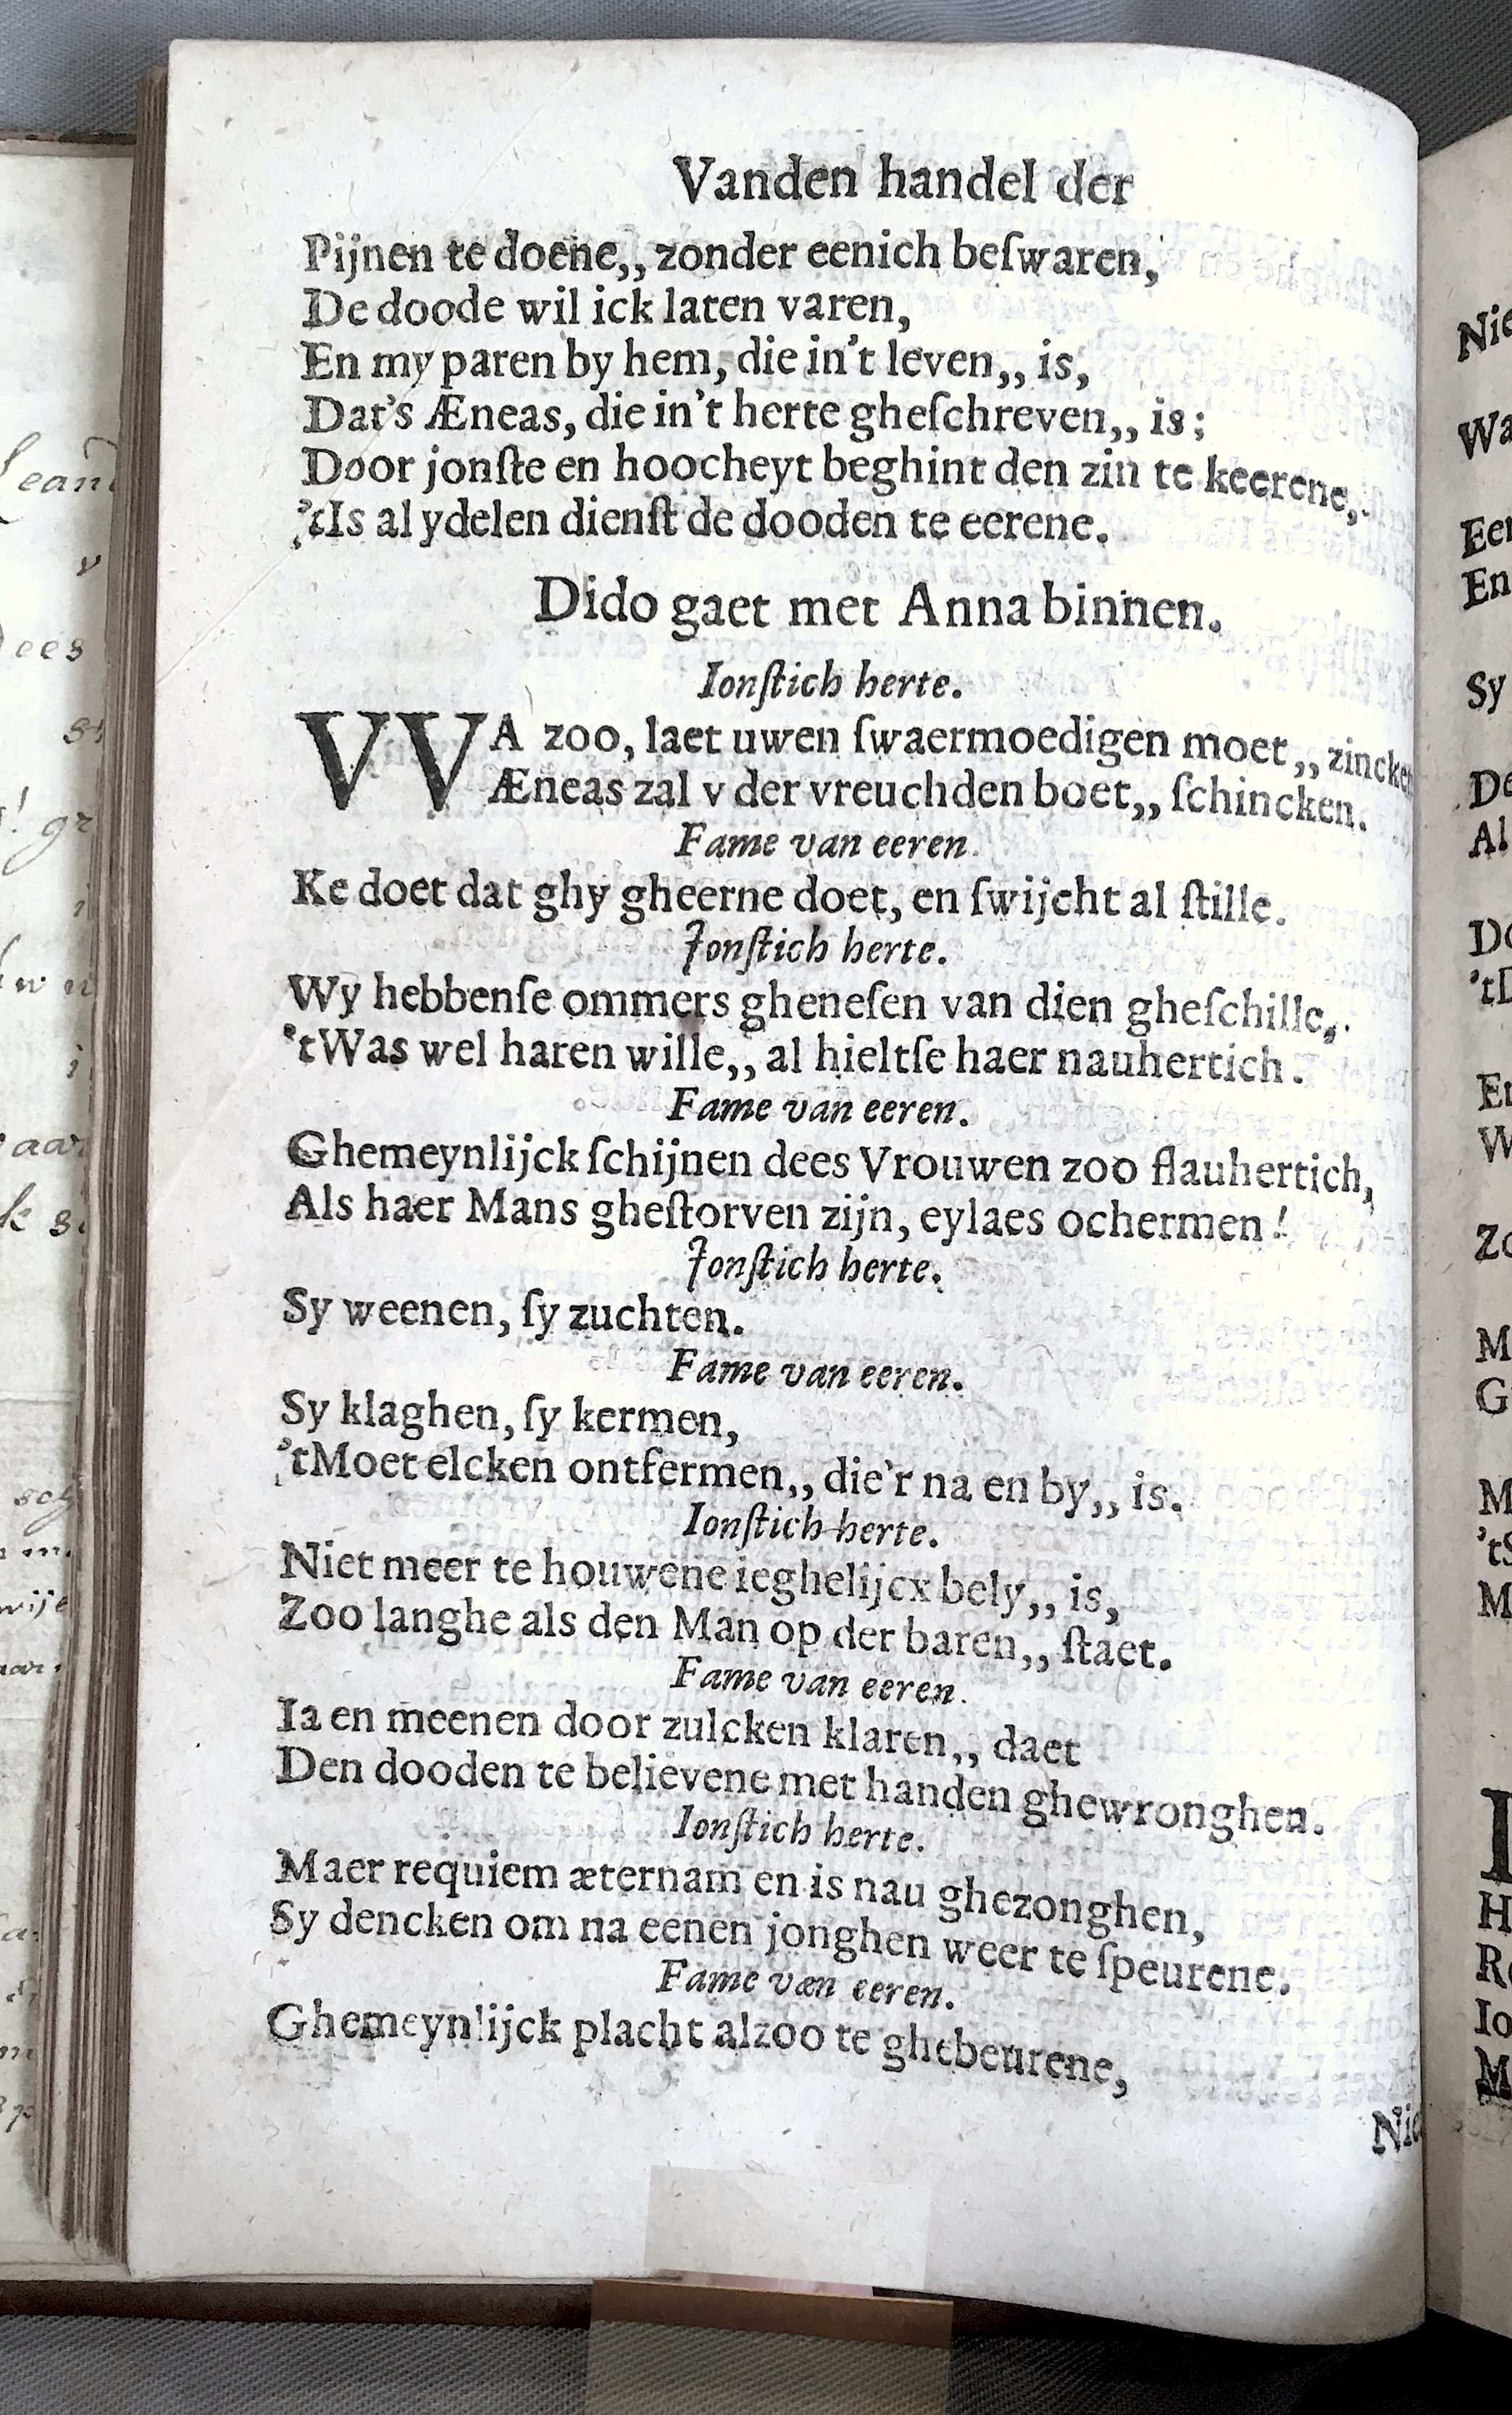 Vanden handel der
Pijnen te doene,, zonder eenich beſwaren,
De doode wil ick laten varen,
En my paren by hem, die in't leven,, is,
Dat's Æneas, die in't herte gheſchreven,, is;
Door jonſte en hoocheyt beghint den zin te keerene,
'tIs al ydelen dienſt de dooden te eerene.
Dido gaet met Anna binnen.
Ionſtich herte.
VVA zoo, laet uwen ſwaermoedigen moet,, zincken
Æneas zal v der vreuchden boet,, ſchincken.
Fame van eeren.
Ke doet dat ghy gheerne doet, en ſwijcht al ſtille.
Jonſtich herte.
Wy hebbenſe ommers gheneſen van dien gheſchille,
'tWas wel haren wille,, al hieltſe haer nauhertich.
Fame van eeren.
Ghemeynlijck ſchijnen dees Vrouwen zoo flauhertich,
Als haer Mans gheſtorven zijn, eylaes ochermen!
Jonſtich herte.
Sy weenen, ſy zuchten.
Fame van eeren.
Sy klaghen, ſy kermen,
'tMoet elcken ontfermen,, die'r na en by,, is.
Ionſtich herte.
Niet meer te houwene ieghelijcx bely,, is,
Zoo langhe als den Man op der baren,, ſtaet.
Fame van eeren.
Ia en meenen door zulcken klaren,, daet
Den dooden te believene met handen ghewronghen.
Ionſtich herte.
Maer requiem æternam en is nau ghezonghen,
Sy dencken om na eenen jonghen weer te ſpeurene.
Fame væn eeren.
Ghemeynlijck placht alzoo te ghebeurene,